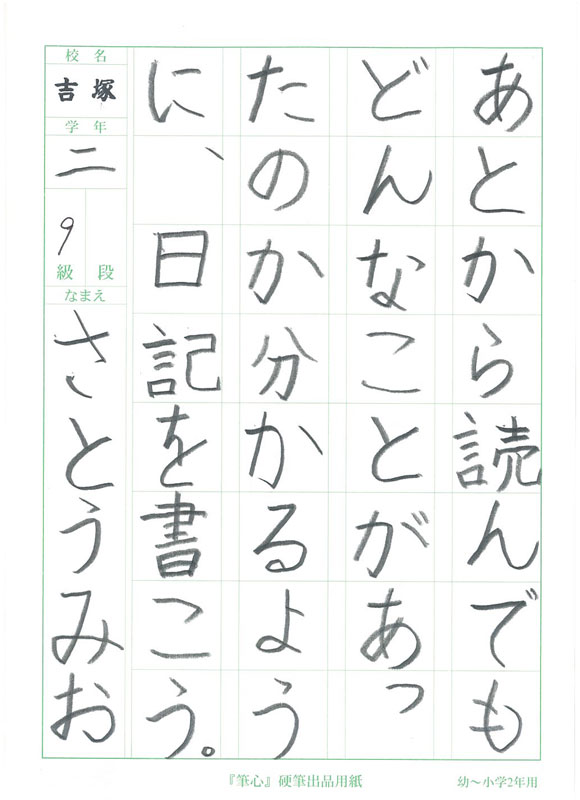 あとから読んでも
どんなことがあっ
たのか分かるよう
に、日記を書こう。
校名
吉塚
学年
二
9
級段
なまえ
さとうみお
『筆心』硬筆出品用紙
幼～小学2年用